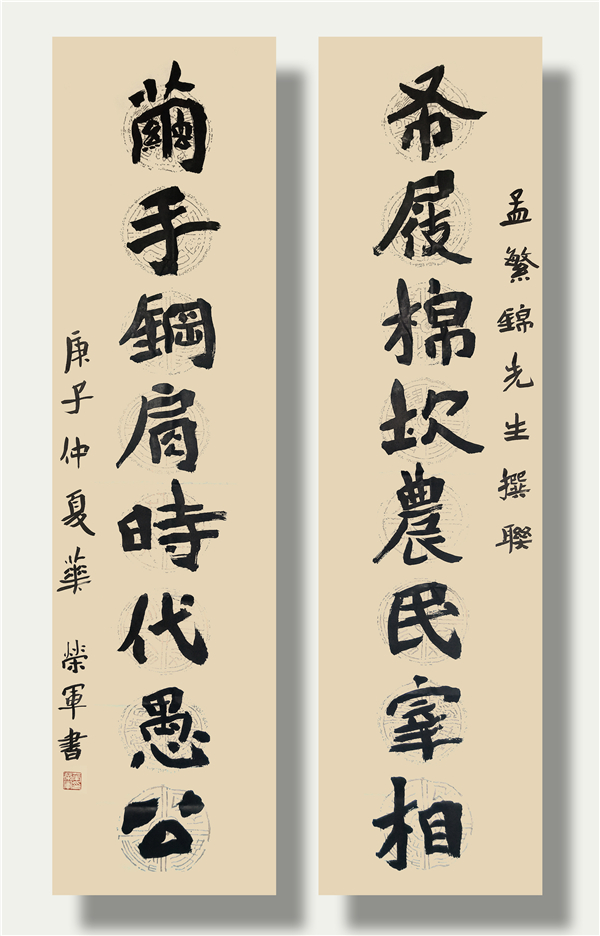 孟繁錦先生撰聯
布屐棉坎農民宰相
繭手鋼肩時代愚公
庚子仲夏華 榮軍書